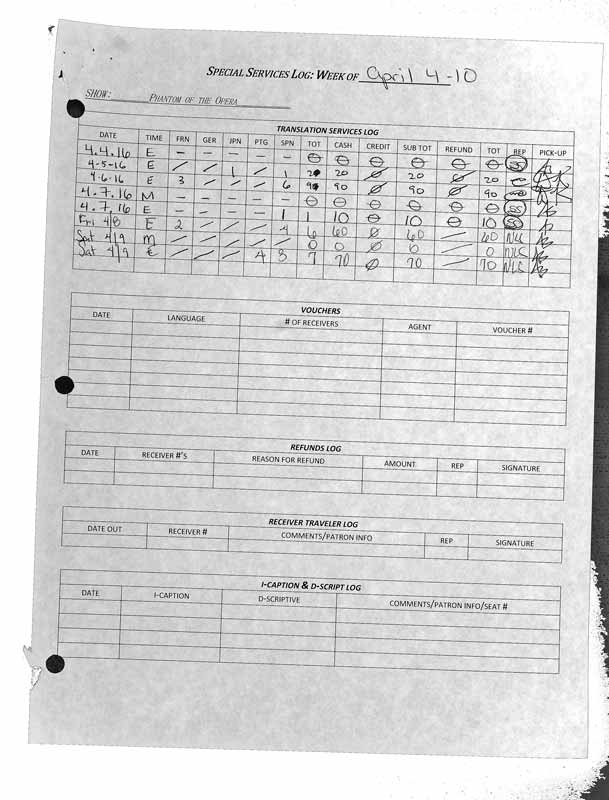 SPECIAL SERVICES LOG: WEEK OF April 4-10
SHOW: PHANTOM OF THE OPERA
TRANSLATION SERVICES LOG
DATE TIME FRN GER JPN PTG SPN TOT CASH CREDIT SUB TOT REFUND TOT REP PICK-UP
4.4.16 E – – – – – 0 0 0 0 0 0 SS
4-5-16 E / / 1 / 1 20 Ø 20 Ø 20
4-6-16 E 3 / / / 6 90 Ø 90 Ø 90
4.7.16 M – – – – – 0 0 0 0 0 0 SS
4.7.16 E – – – – 1 1 10 0 10 0 10 SS
Fri 4/8 E 2 / / / 4 6 60 Ø 60 / 60 NLC
Sat 4/9 M / / / / / 0 0 Ø 0 / 0 NLC
Sat 4/9 E / / / 4 3 7 70 Ø 70 / 70 NLC
VOUCHERS
DATE LANGUAGE # OF RECEIVERS AGENT VOUCHER #
REFUNDS LOG
DATE RECEIVER #'S REASON FOR REFUND AMOUNT REP SIGNATURE
RECEIVER TRAVELER LOG
DATE OUT RECEIVER # COMMENTS/PATRON INFO REP SIGNATURE
I-CAPTION & D-SCRIPT LOG
DATE I-CAPTION D-SCRIPTIVE COMMENTS/PATRON INFO/SEAT #